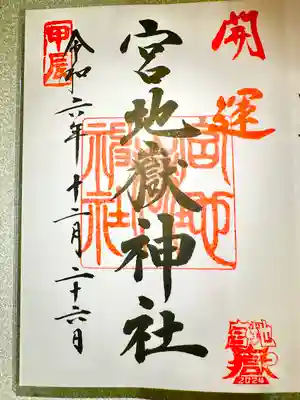 開運
宮地嶽神社
令和六年十二月二十六日
甲辰
宮地嶽神社
宮地嶽
2024